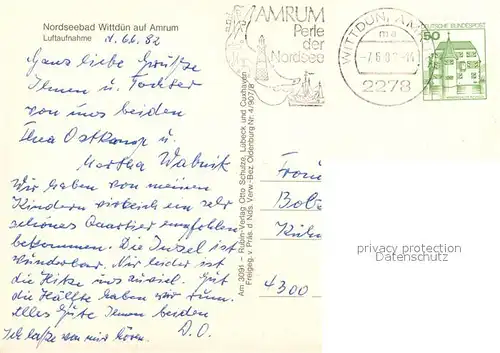 Nordseebad Wittdün auf Amrum
Luftaufnahme
d. 6.6.82
Ganz liebe Grüße
Ihnen u. Tochter
von uns beiden
Thea Ostkamp u.
Martha Wabnik
Wir haben von meinen
Kindern wirklich ein sehr
schönes Quartier empfohlen
bekommen. Die Insel ist
wunderbar. Nur leider ist
die Hitze uns zuviel. Gut
die Hälfte haben wir rum.
Alles Gute Ihnen beiden
D.O.
Ich lasse von mir hören.
Am 3091 – Rubin-Verlag Otto Schutze, Lübeck und Cuxhaven
Freigeg. Präs. d. Nds. Verw.-Bez. Oldenburg Nr. 4/9078
AMRUM
Perle
der
Nordsee
WITTDÜN, AM
ma
2278
DEUTSCHE BUNDESPOST
50
4300
privacy protection
Datenschutz